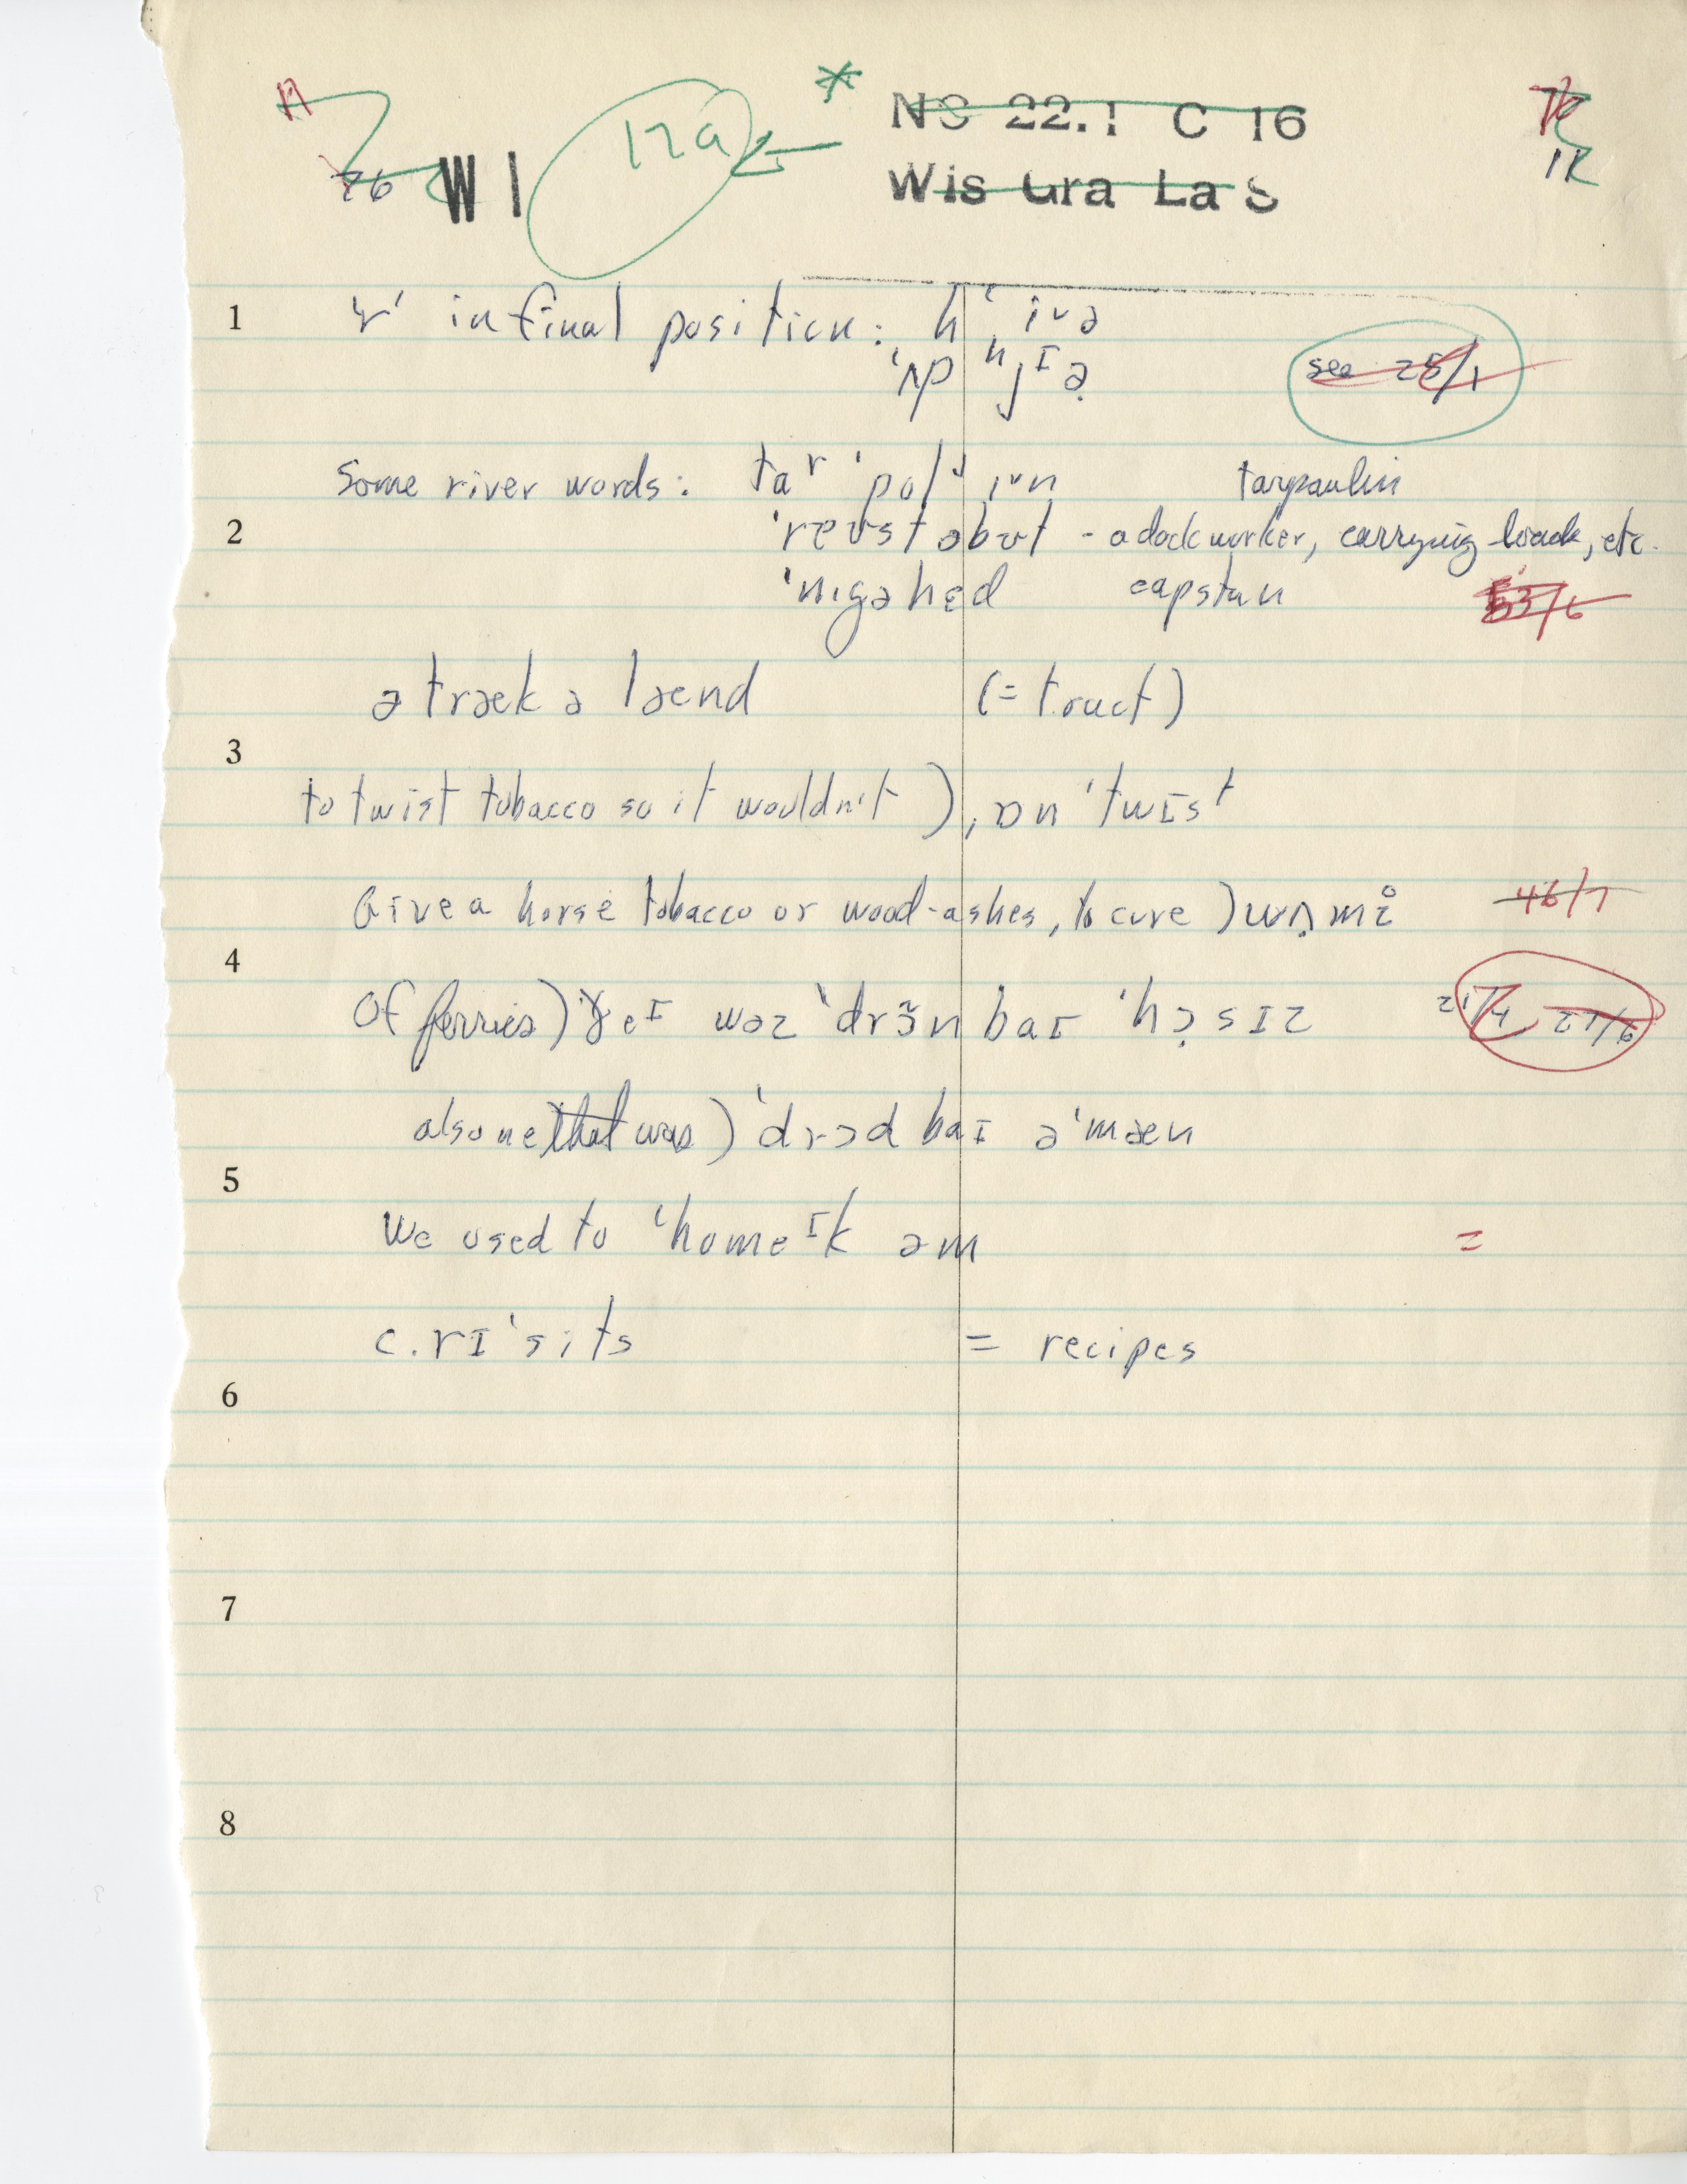 * N̶S̶ ̶2̶2̶.̶1̶ ̶C̶ ̶1̶6̶
W I 12a W̶i̶s̶ ̶G̶r̶a̶ ̶L̶a̶ ̶S̶
1 'r' in final position:
s̶e̶e̶ ̶2̶5̶/̶1̶
Some river words: taʳ 'polɪᵛn tarpaulin
2 'reʊstəbʊt - a dock worker, carrying loads, etc.
'nɪgəhɛd capstan
ə træk ə lænd (= tract)
3
to twist tobacco so it wouldn't ), ɒn 'twɪst
Give a horse tobacco or wood-ashes, to cure ) 4̶6̶/̶7̶
4
Of ferries) ðeɪ wəz 'drɔ̃n baɪ 'hɔ̣sɪz 21/4 2̶1̶/̶6̶
also one that was) 'drɔd baɪ ə 'mæn
5
We used to 'home ɪk əm =
c. rɪ'sits = recipes
6
7
8